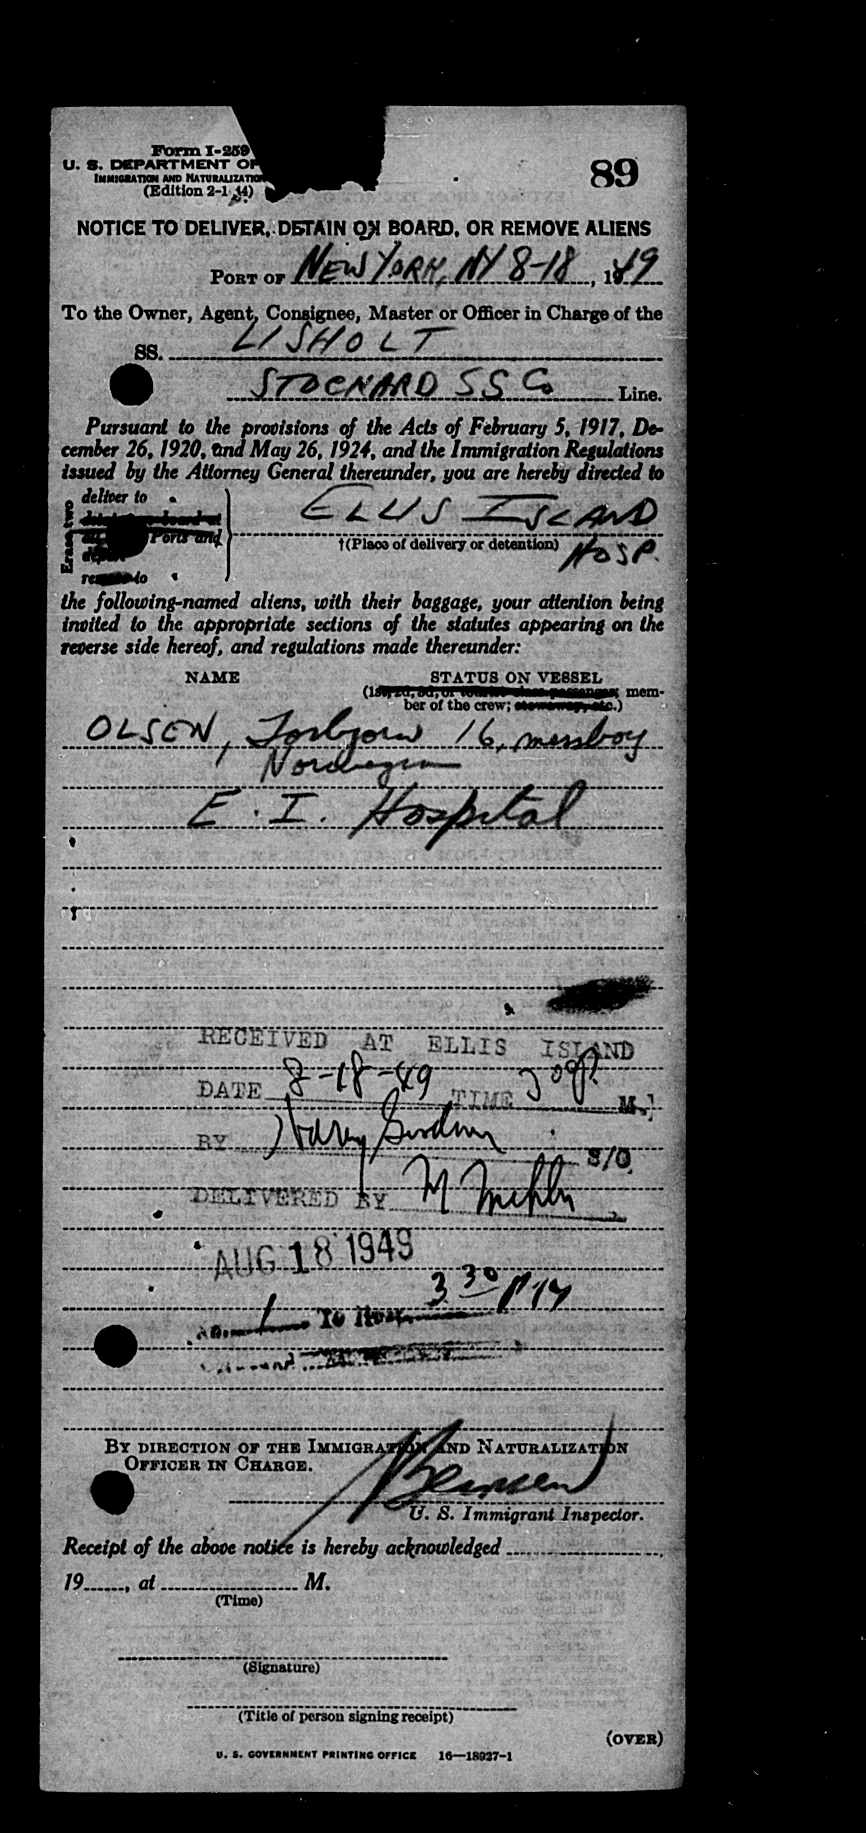 Form I-259
U. S. DEPARTMENT OF
IMMIGRATION AND NATURALIZATION
(Edition 2-1-44)
89
NOTICE TO DELIVER, DETAIN ON BOARD, OR REMOVE ALIENS
PORT OF NEW YORK, NY 8-18, 1949
To the Owner, Agent, Consignee, Master or Officer in Charge of the
SS. LISHOLT
STOCKARD SS Co Line.
Pursuant to the provisions of the Acts of February 5, 1917, De-
cember 26, 1920, and May 26, 1924, and the Immigration Regulations
issued by the Attorney General thereunder, you are hereby directed to
Erase two
deliver to
Ports and
ELLIS ISLAND
†(Place of delivery or detention) HOSP.
to
the following-named aliens, with their baggage, your attention being
invited to the appropriate sections of the statutes appearing on the
reverse side hereof, and regulations made thereunder:
NAME STATUS ON VESSEL
(1st, 2d, 3d, or tourist class passenger; mem-
ber of the crew; stowaway, etc.)
OLSEN, Torbjorn 16, messboy
Norwegian
E. I. Hospital
RECEIVED AT ELLIS ISLAND
DATE 8-18-49 TIME P. M.
BY Harry S/O
DELIVERED BY M
AUG 18 1949
3 30 PM
1 To
BY DIRECTION OF THE IMMIGRATION AND NATURALIZATION
OFFICER IN CHARGE.
U. S. Immigrant Inspector.
Receipt of the above notice is hereby acknowledged
19 , at M.
(Time)
(Signature)
(Title of person signing receipt)
(OVER)
U. S. GOVERNMENT PRINTING OFFICE 16—18927-1